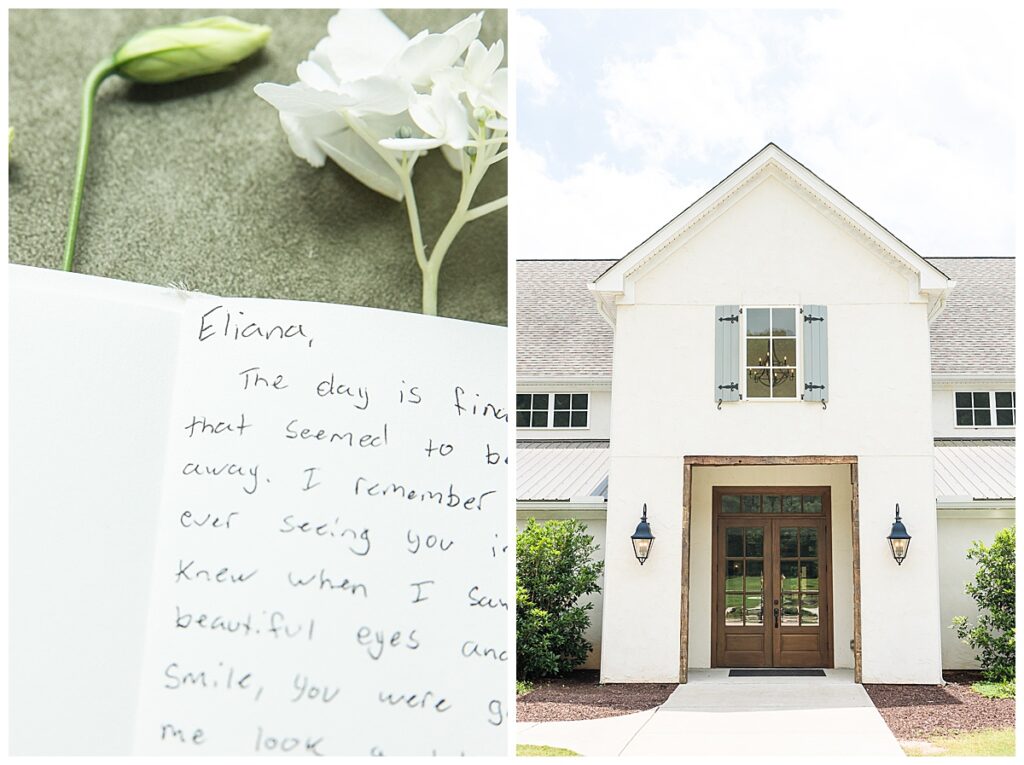 Eliana,
The day is fina
that seemed to be
away. I remember
ever seeing you in
knew when I saw
beautiful eyes and
smile, you were g
me look a